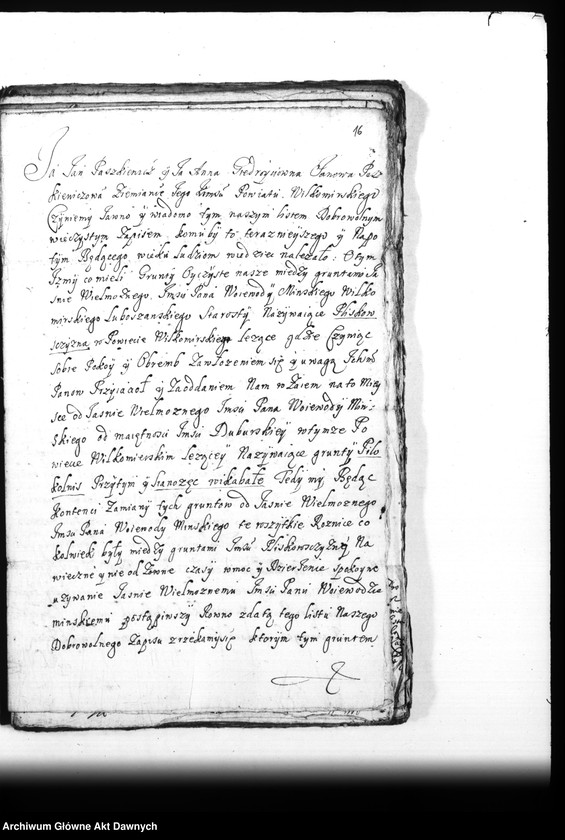 16
Ja Jan Paszkiewicz ÿ Ja Anna Giedrojciowna Janowa Pasz
kiewiczowa Ziemianie Jego Kimsci Powiatu Wilkomirskiego
Czyniemy Jawno ÿ wiadomo tym naszym listem Dobrowolnym
wieczystym Zapisem komu by to teraznieyszego ÿ Napo
tym Będącego wieku Ludziom wiedziec nalezało: Otym
Izmy co mieli Grunty Oyczyste nasze między gruntami Ja
snie Wielmoznego Jmsci Pana Woiewody Minskiego Wilko
mirskiego Luboszanskiego Starosty Nazywaiące Pliskow
sczyzna w Powiecie Wilkomirskiego Lezące gdzie Czyniąc
sobie Pokoÿ ÿ Obremb Zawłozeniem się ÿ uwagą Ichmć
Panow Przyiacioł ÿ Zaoddaniem Nam wzaiem na to Miey
sce od Jasnie Wielmoznego Jmsci Pana Woiewody Min=
skiego od maiętnosci Jmsci Duburskieÿ wtymze Po
wiecie Wilkomierskim Lezącey Nazywaiące grunty Pilo
kalnis Przytym ÿ Sianozęc wikabałe Tedy my Będąc
Kontenci Zamiany tych gruntow od Jasnie Wielmoznego
Jmsci Pana Woiewody Minskiego te wszytkie Roznice co
kolwiek były między gruntami Jmsci Pliskowsczyzney Na
wieczne ÿ nie od Zowne czasy wmoc ÿ Dzierzenie spokoyne
uzywanie Jasnie Wielmoznemu Jmsci Panu Woiewodzie
minskiemu postąpiwszy Rowno zdatą tego listu Naszego
Dobrowolnego Zapisu zrzekamysię ktorym tym gruntem
Archiwum Główne Akt Dawnych